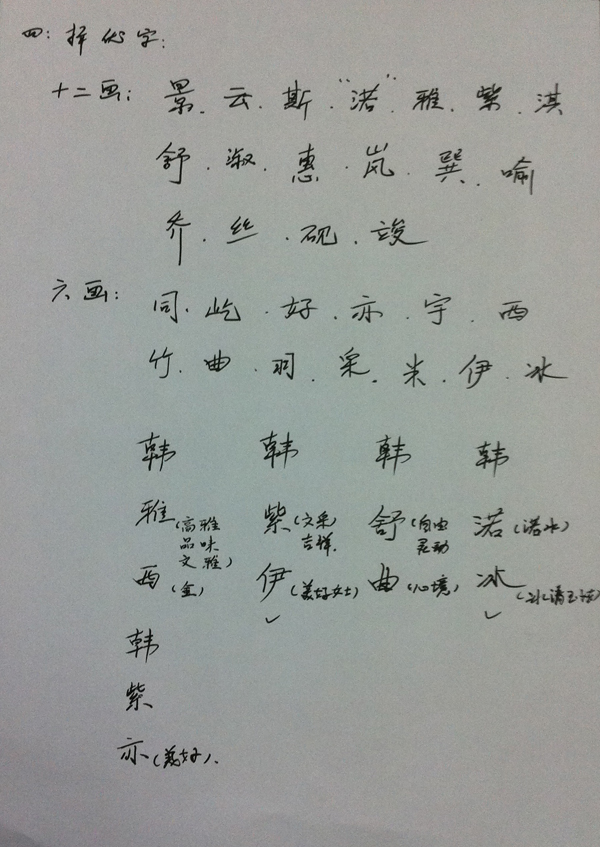 四：择优字：
十二画：景．云．斯．“渃”．雅．紫．淇
舒．淑．惠．岚．巽．喻
乔．丝．砚．竣
六画：同．屹．好．亦．宇．西
竹．曲．羽．采．米．伊．冰
韩 韩 韩 韩
雅（高雅品味文雅） 紫（文采吉祥） 舒（自由灵动） 渃（渃水）
西（金） 伊（美好女士） 曲（心境） 冰（冰清玉洁）
韩
紫
亦（美好）．